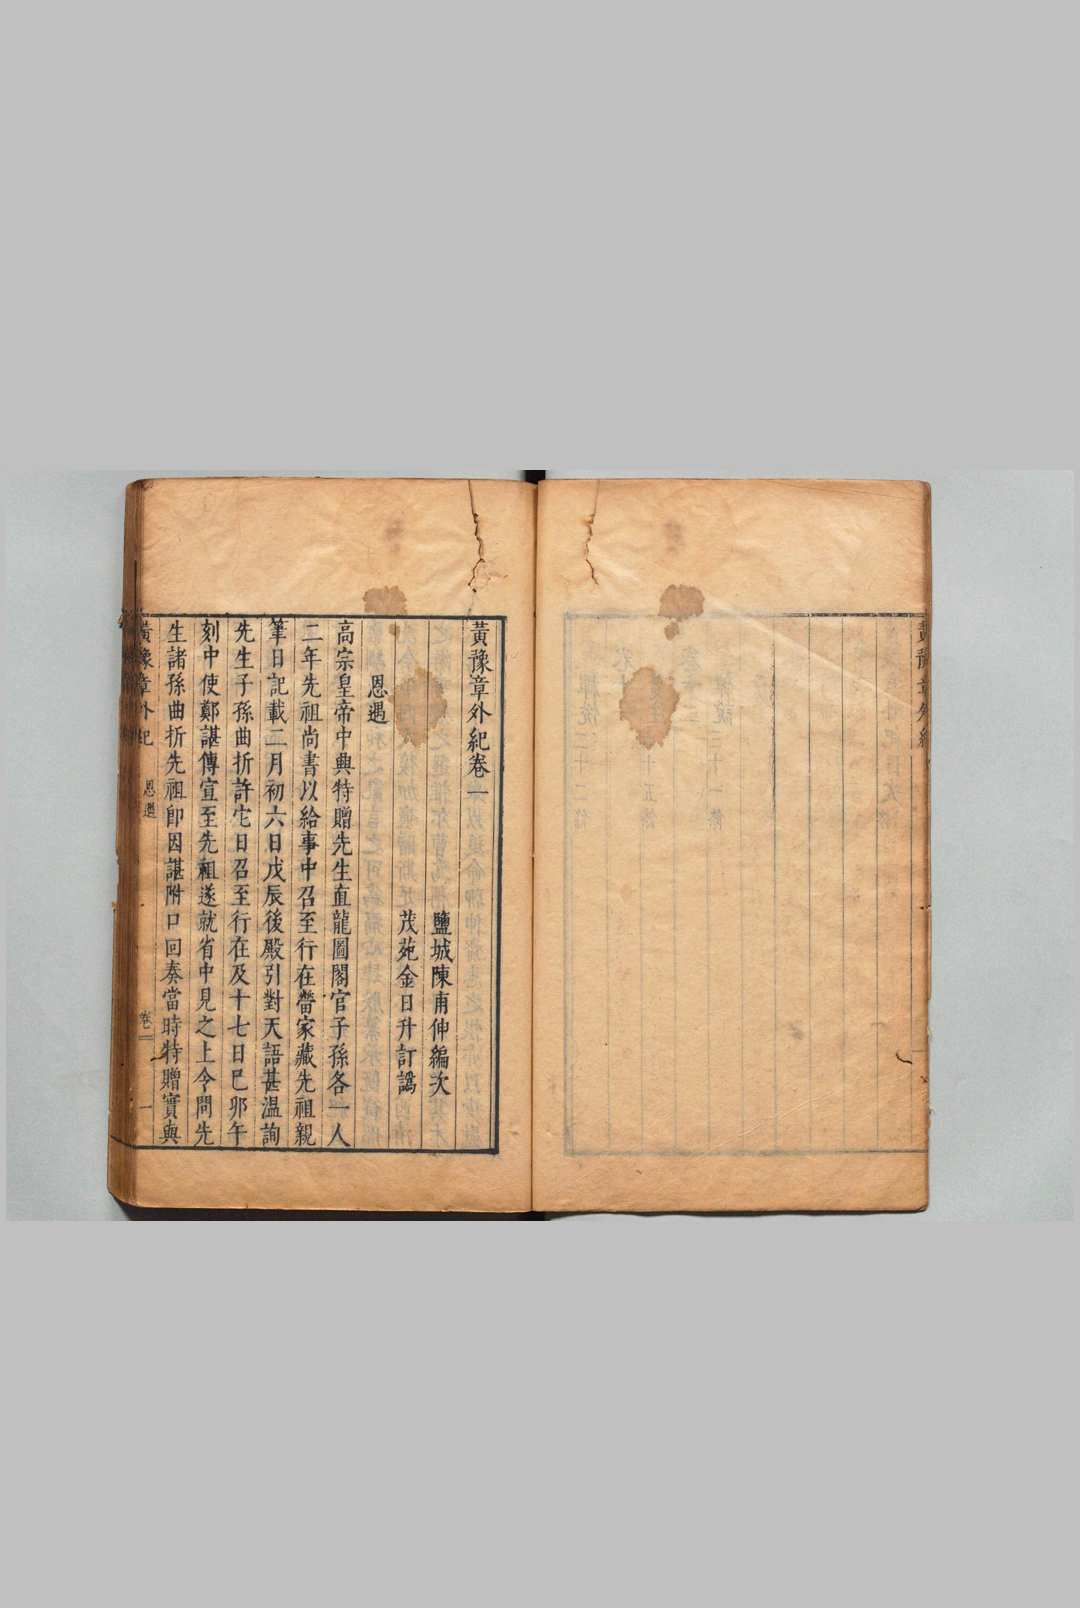 黃豫章外紀卷一
鹽城陳甫伸編次
茂苑金日升訂譌
恩遇
高宗皇帝中興特贈先生直龍圖閣官子孫各一人
二年先祖尚書以給事中召至行在嘗家藏先祖親
筆日記載二月初六日戊辰後殿引對天語甚溫詢
先生子孫曲折許它日召至行在及十七日巳卯午
刻中使鄭諶傳宣至先祖遂就省中見之上令問先
生諸孫曲折先祖卽因諶附口回奏當時特贈實與
黃豫章外紀
恩遇
卷一
一